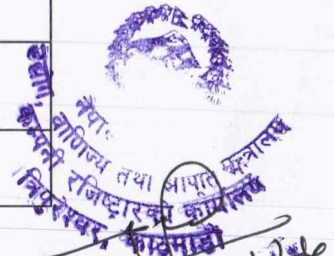 वाणिज्य तथा आपूर्ति मन्त्रालय
कम्पनी रजिष्ट्रारको कार्यालय
त्रिपुरेश्वर, काठमाडौं